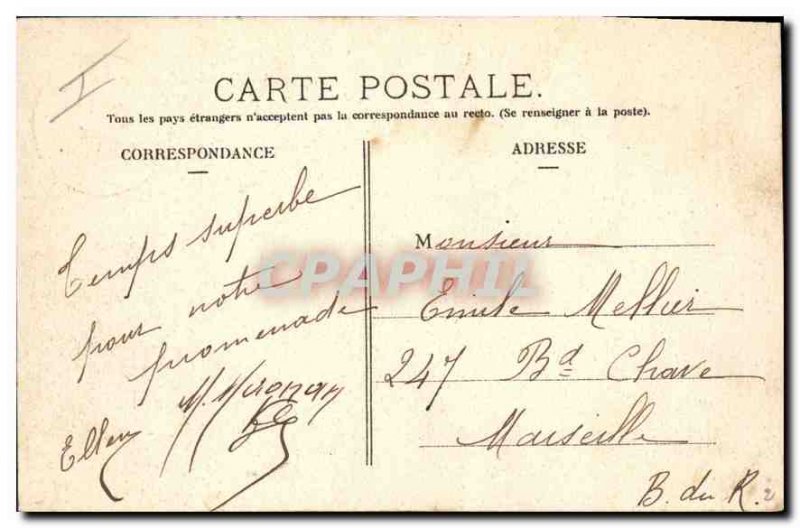 CARTE POSTALE.
Tous les pays étrangers n'acceptent pas la correspondance au recto. (Se renseigner à la poste).
CORRESPONDANCE
Temps superbe
pour notre
promenade
ADRESSE
Monsieur
Emile Mellier
247 Bd Chave
Marseille
B. du R.
CPAPHIL